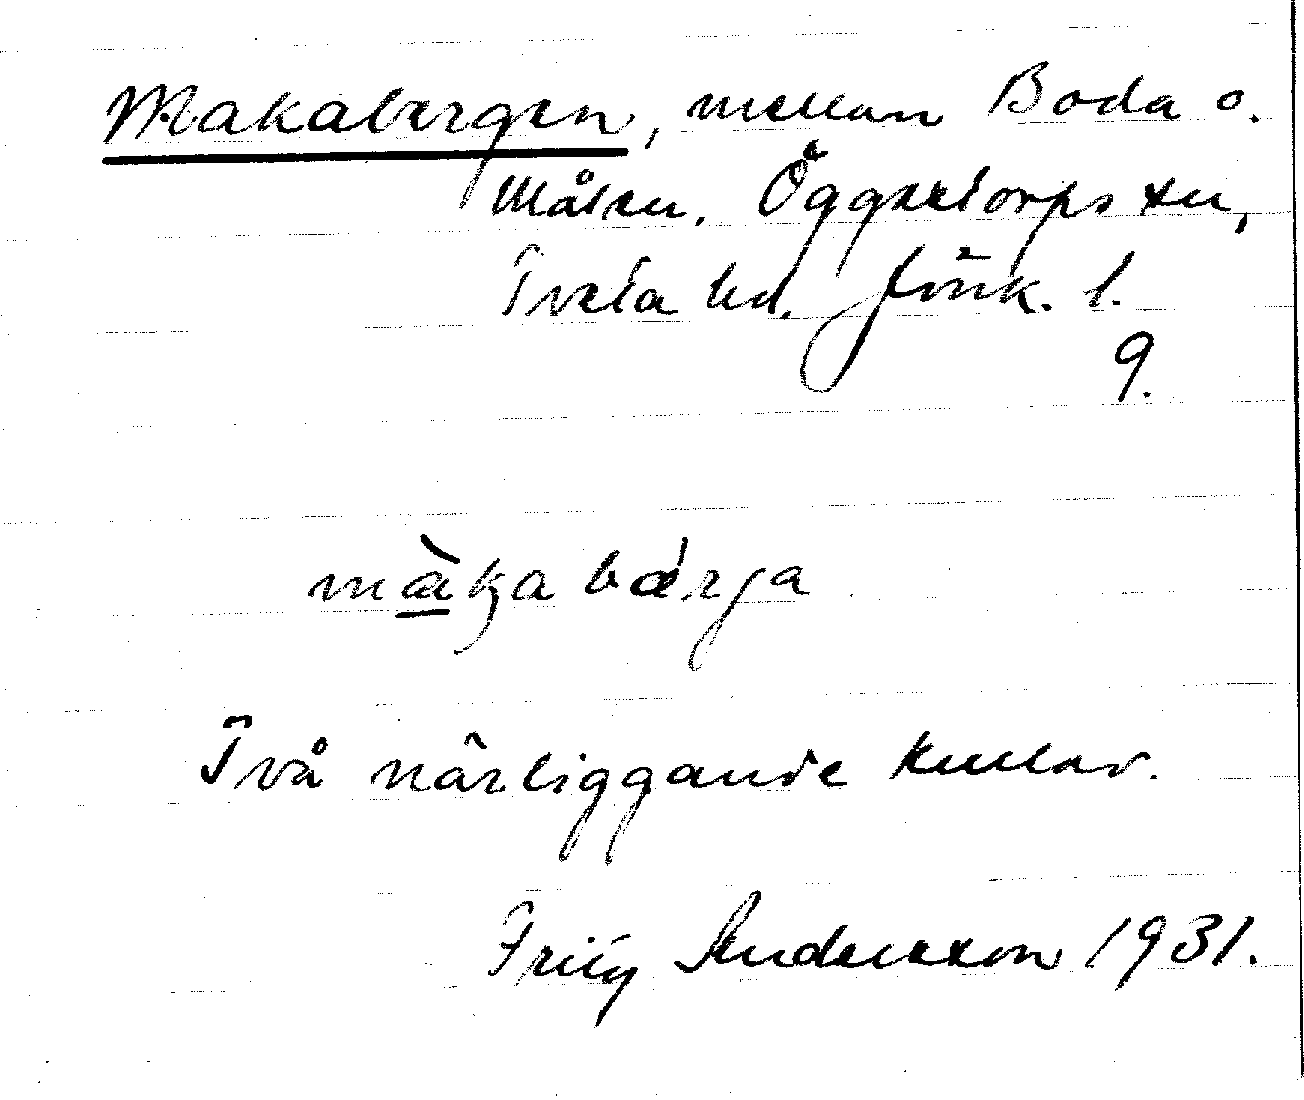 Makabergen, mellan Boda o.
Målen. Öggestorps sn,
Tveta hd. Jönk. l.
9.
màka bǽrja
Två närliggande kullar.
Fritz Andersson 1931.